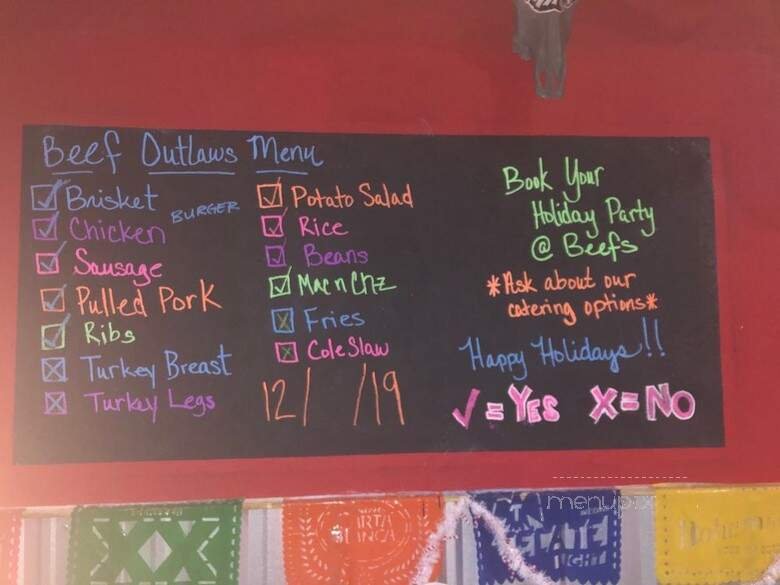 Beef Outlaws Menu
Brisket
BURGER
Chicken
Sausage
Pulled Pork
Ribs
Turkey Breast
Turkey Legs
Potato Salad
Rice
Beans
Mac n Chz
Fries
Cole Slaw
12/ /19
Book Your
Holiday Party
@ Beefs
*Ask about our
catering options*
Happy Holidays!!
✓=YES X=NO
menupix
XX
CARTA
BLANCA
LIGHT